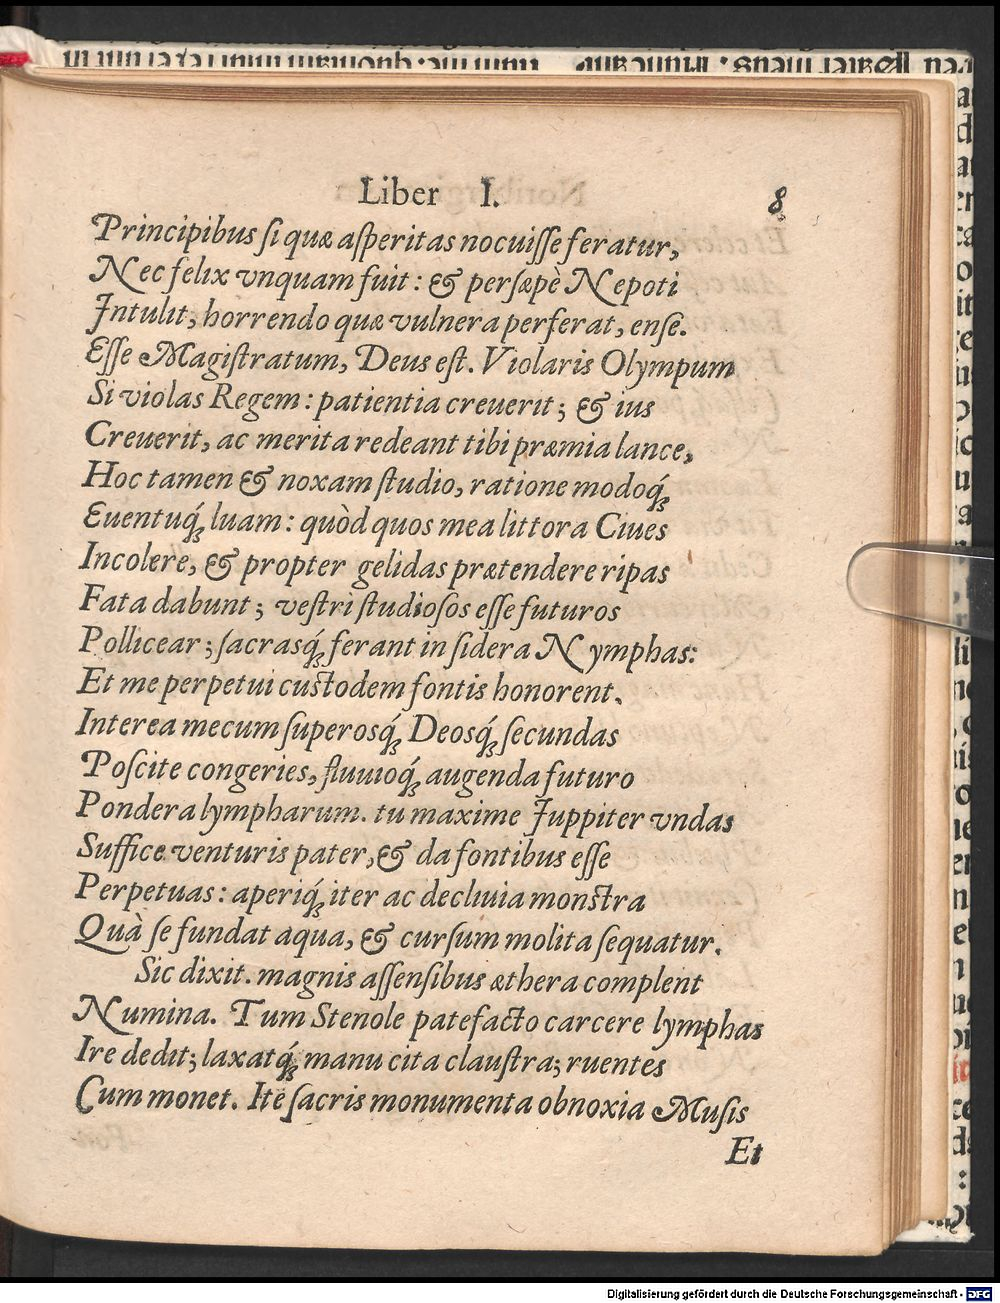 Liber I. 8
Principibus ſi quæ aſperitas nocuiſſe feratur,
Nec felix vnquam fuit: & perſæpè Nepoti
Intulit, horrendo quæ vulnera perferat, enſe.
Eſſe Magiſtratum, Deus eſt. Violaris Olympum
Si violas Regem: patientia creuerit; & ius
Creuerit, ac merita redeant tibi præmia lance,
Hoc tamen & noxam ſtudio, ratione modoq́;
Euentuq́; luam: quòd quos mea littora Ciues
Incolere, & propter gelidas prætendere ripas
Fata dabunt; veſtri ſtudioſos eſſe futuros
Pollicear; ſacrasq́; ferant in ſidera Nymphas:
Et me perpetui cuſtodem fontis honorent.
Interea mecum ſuperosq́; Deosq́; ſecundas
Poſcite congeries, fluuioq́; augenda futuro
Pondera lympharum. tu maxime Juppiter vndas
Suffice venturis pater, & da fontibus eſſe
Perpetuas: aperiq́; iter ac decliuia monſtra
Quà ſe fundat aqua, & curſum molita ſequatur.
Sic dixit. magnis aſſenſibus æthera complent
Numina. Tum Stenole patefacto carcere lymphas
Ire dedit; laxatq́; manu cita clauſtra; ruentes
Cum monet. Ite ſacris monumenta obnoxia Muſis
Et
Digitalisierung gefördert durch die Deutsche Forschungsgemeinschaft - DFG